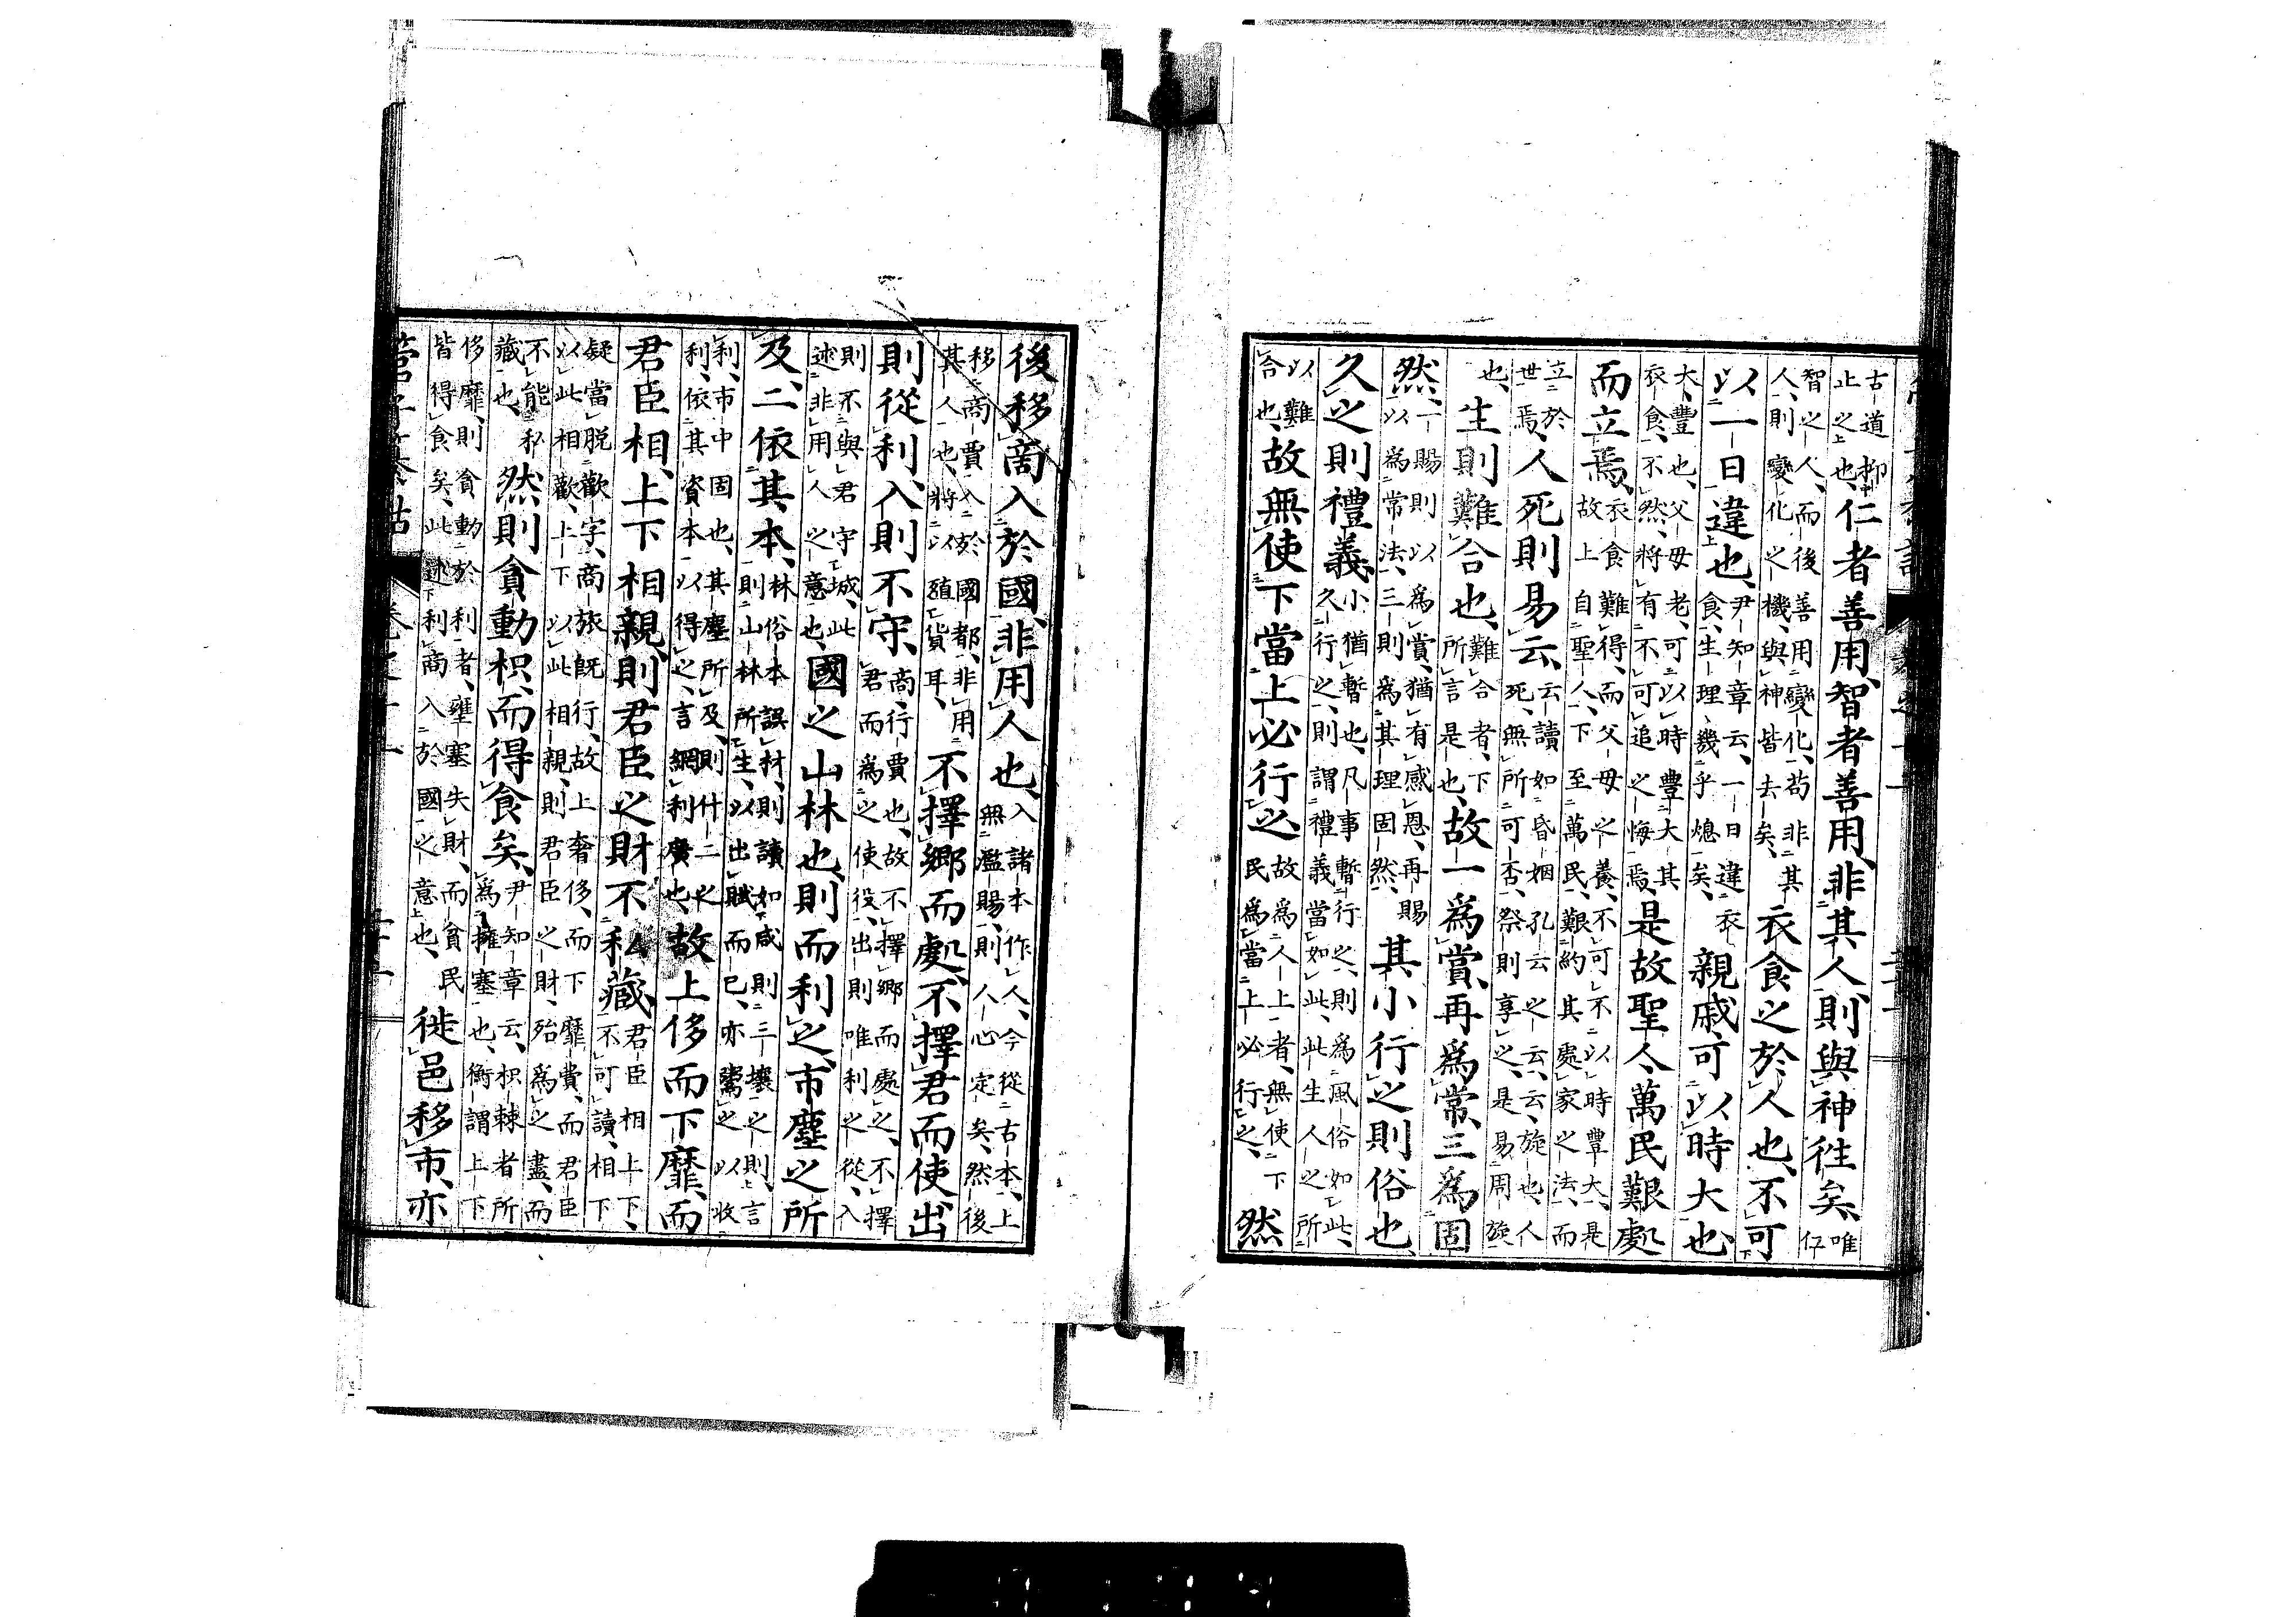 古道抑止之也、仁者善用、智者善用、非其人、則與神徃矣、唯仔
智之人、而後善用變化、苟非其人、則變化之機、與神皆去矣、衣食之於人也、不可
以一日違也、尹知章云、一日違衣食、生理幾乎熄矣、親戚、可以時大也、
大、豐也、父母老、可以時豐大其衣食、不然、將有不可追之悔焉、是故聖人、萬民艱處
而立焉、衣食難得、而父母之養、不可不以時豐大、是故上自聖人、下至萬民、艱約其處家之法、而
立於世焉、人死則易云、云讀如昏姻孔云之云、云、旋也、人死、無所可否、祭則享之、是易周旋
也、生則難合也、難合者、下所言是也、故一爲賞、再爲常、三爲固
然、一賜則以爲賞、猶有感恩、再賜以爲常法、三則爲其理固然、其小行之則俗也、
久之則禮義、小猶暫也、凡事暫行之、則爲風俗如此、久行之、則謂禮義當如此、此生人之所
以難合也、故無使下當上必行之、故爲人上者、無使下民爲當上必行之、然
後移商入於國、非用人也、入諸本作人、今從古本、上無濫賜、則人心定矣、然後
移商賈入於國都、非用其人也、將以殖貨耳、不擇郷而處、不擇君而使、出
則從利、入則不守、商行賈也、故不擇郷而處之、不擇君而爲之使役、出則唯利之從、入
則不與君守城、此述非用人之意也、國之山林也、則而利之、市廛之所
及、二依其本、林俗本誤材、則讀如咸則三壤之則、言則山林所生、以出賦而已、亦鬻之以收
利、市中固也、其廛所及、則什二之利、依其資本以得之、言網利廣也、故上侈而下靡、而
君臣相、上下相親、則君臣之財不私藏、君臣相上下、不可讀、相下
疑當脱歡字、商旅既行、故上奢侈、而下靡費、而君臣以此相歡、上下以此相親、則君臣之財、殆爲之盡、而
不能私藏也、然則貪動枳、而得食矣、尹知章云、枳棘者所爲擁塞也、衡謂上下
侈靡、則貪動於利者、壅塞失財、而貧民皆得食矣、此述利商入於國之意也、徙邑移市、亦